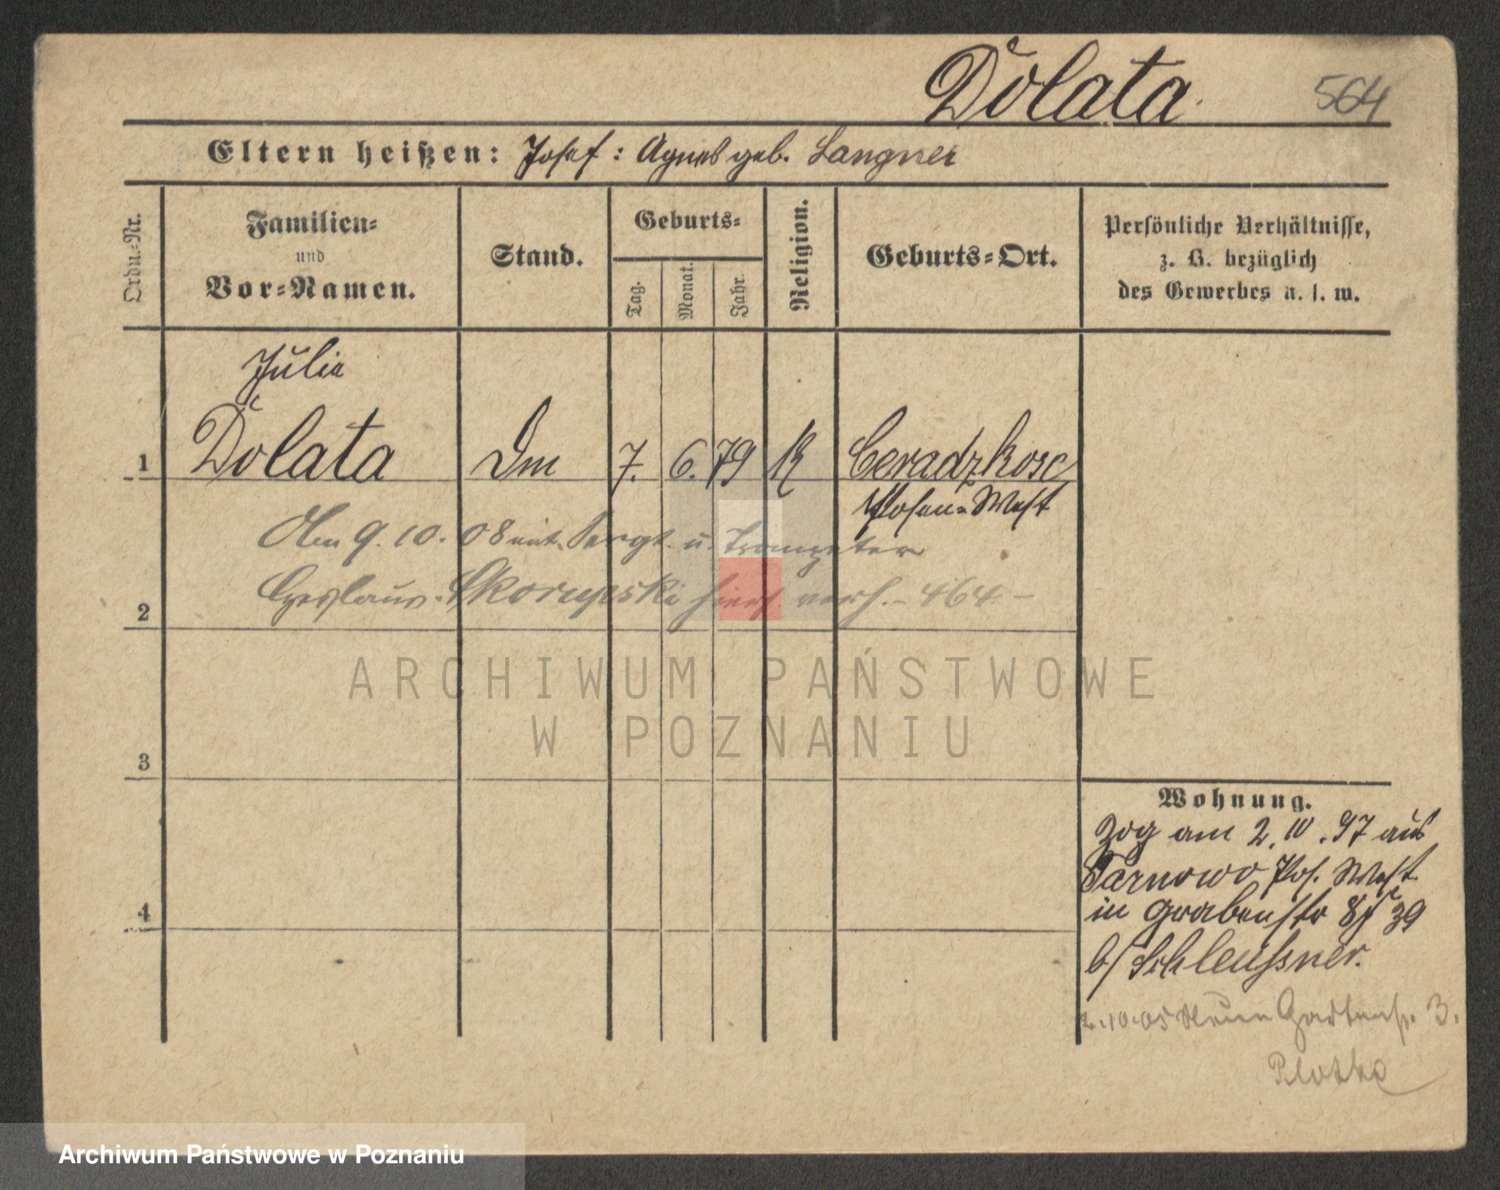 Dolata
564
Eltern heißen: Josef : Agnes geb. Langner
Ordn.-Nr.
Familien-
und
Vor-Namen.
Stand.
Geburts-
Tag.
Monat.
Jahr.
Religion.
Geburts-Ort.
Persönliche Verhältnisse,
z. B. bezüglich
des Gewerbes u. s. w.
Julie
1 Dolata Dm 7. 6. 79 K Ceradzkosc
Posen-West
Am 9. 10. 08 mit Sergt. u. Trompeter
2 Czeslaus Skorupski hier verh. - 464 -
ARCHIWUM PAŃSTWOWE
W POZNANIU
3
4
Wohnung.
Zog am 2. IV. 97 aus
Tarnowo Pos. West
in Grabenstr 39
b/ Schleussner.
2.10.05 Neue Gartenstr. 3.
Plotke
Archiwum Państwowe w Poznaniu